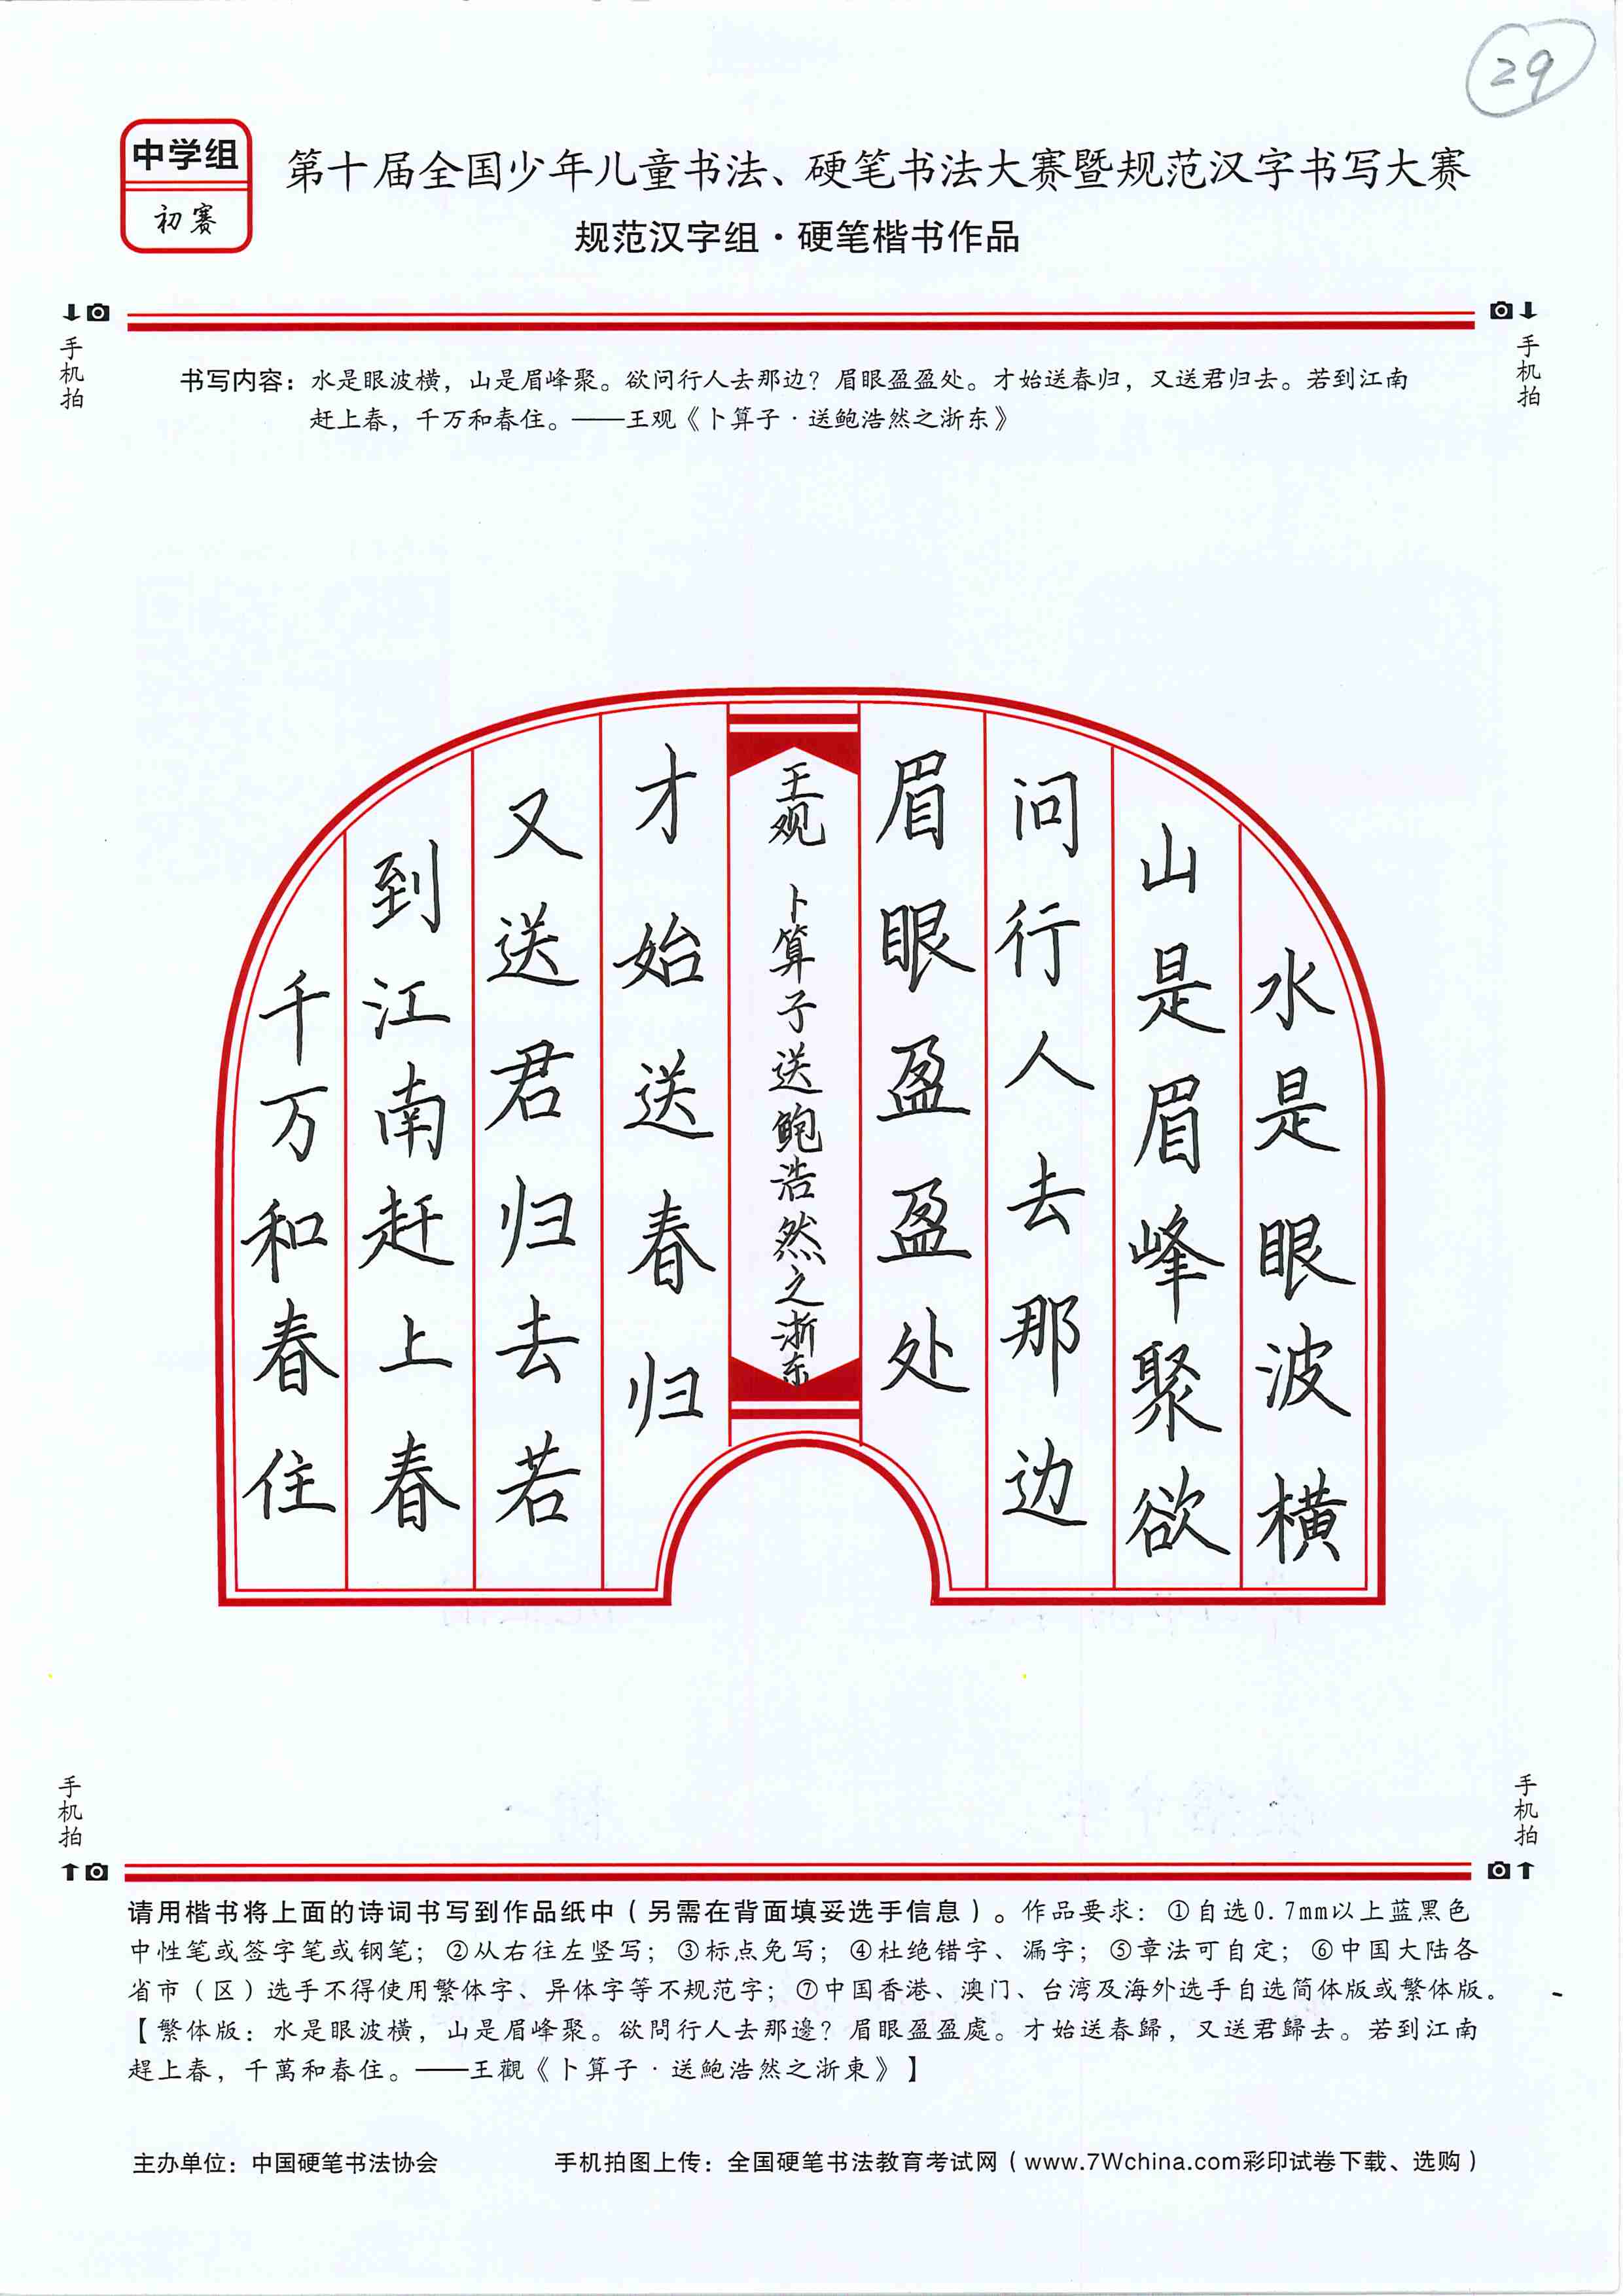 29
中学组
初赛
第十届全国少年儿童书法、硬笔书法大赛暨规范汉字书写大赛
规范汉字组·硬笔楷书作品
手机拍
手机拍
书写内容：水是眼波横，山是眉峰聚。欲问行人去那边？眉眼盈盈处。才始送春归，又送君归去。若到江南
赶上春，千万和春住。——王观《卜算子·送鲍浩然之浙东》
水是眼波横
山是眉峰聚欲
问行人去那边
眉眼盈盈处
王观 卜算子送鲍浩然之浙东
才始送春归
又送君归去若
到江南赶上春
千万和春住
手机拍
手机拍
请用楷书将上面的诗词书写到作品纸中（另需在背面填妥选手信息）。作品要求：①自选0.7mm以上蓝黑色
中性笔或签字笔或钢笔；②从右往左竖写；③标点免写；④杜绝错字、漏字；⑤章法可自定；⑥中国大陆各
省市（区）选手不得使用繁体字、异体字等不规范字；⑦中国香港、澳门、台湾及海外选手自选简体版或繁体版。
【繁体版：水是眼波横，山是眉峰聚。欲問行人去那邊？眉眼盈盈處。才始送春歸，又送君歸去。若到江南
趕上春，千萬和春住。——王觀《卜算子·送鮑浩然之浙東》】
主办单位：中国硬笔书法协会 手机拍图上传：全国硬笔书法教育考试网（www.7Wchina.com彩印试卷下载、选购）